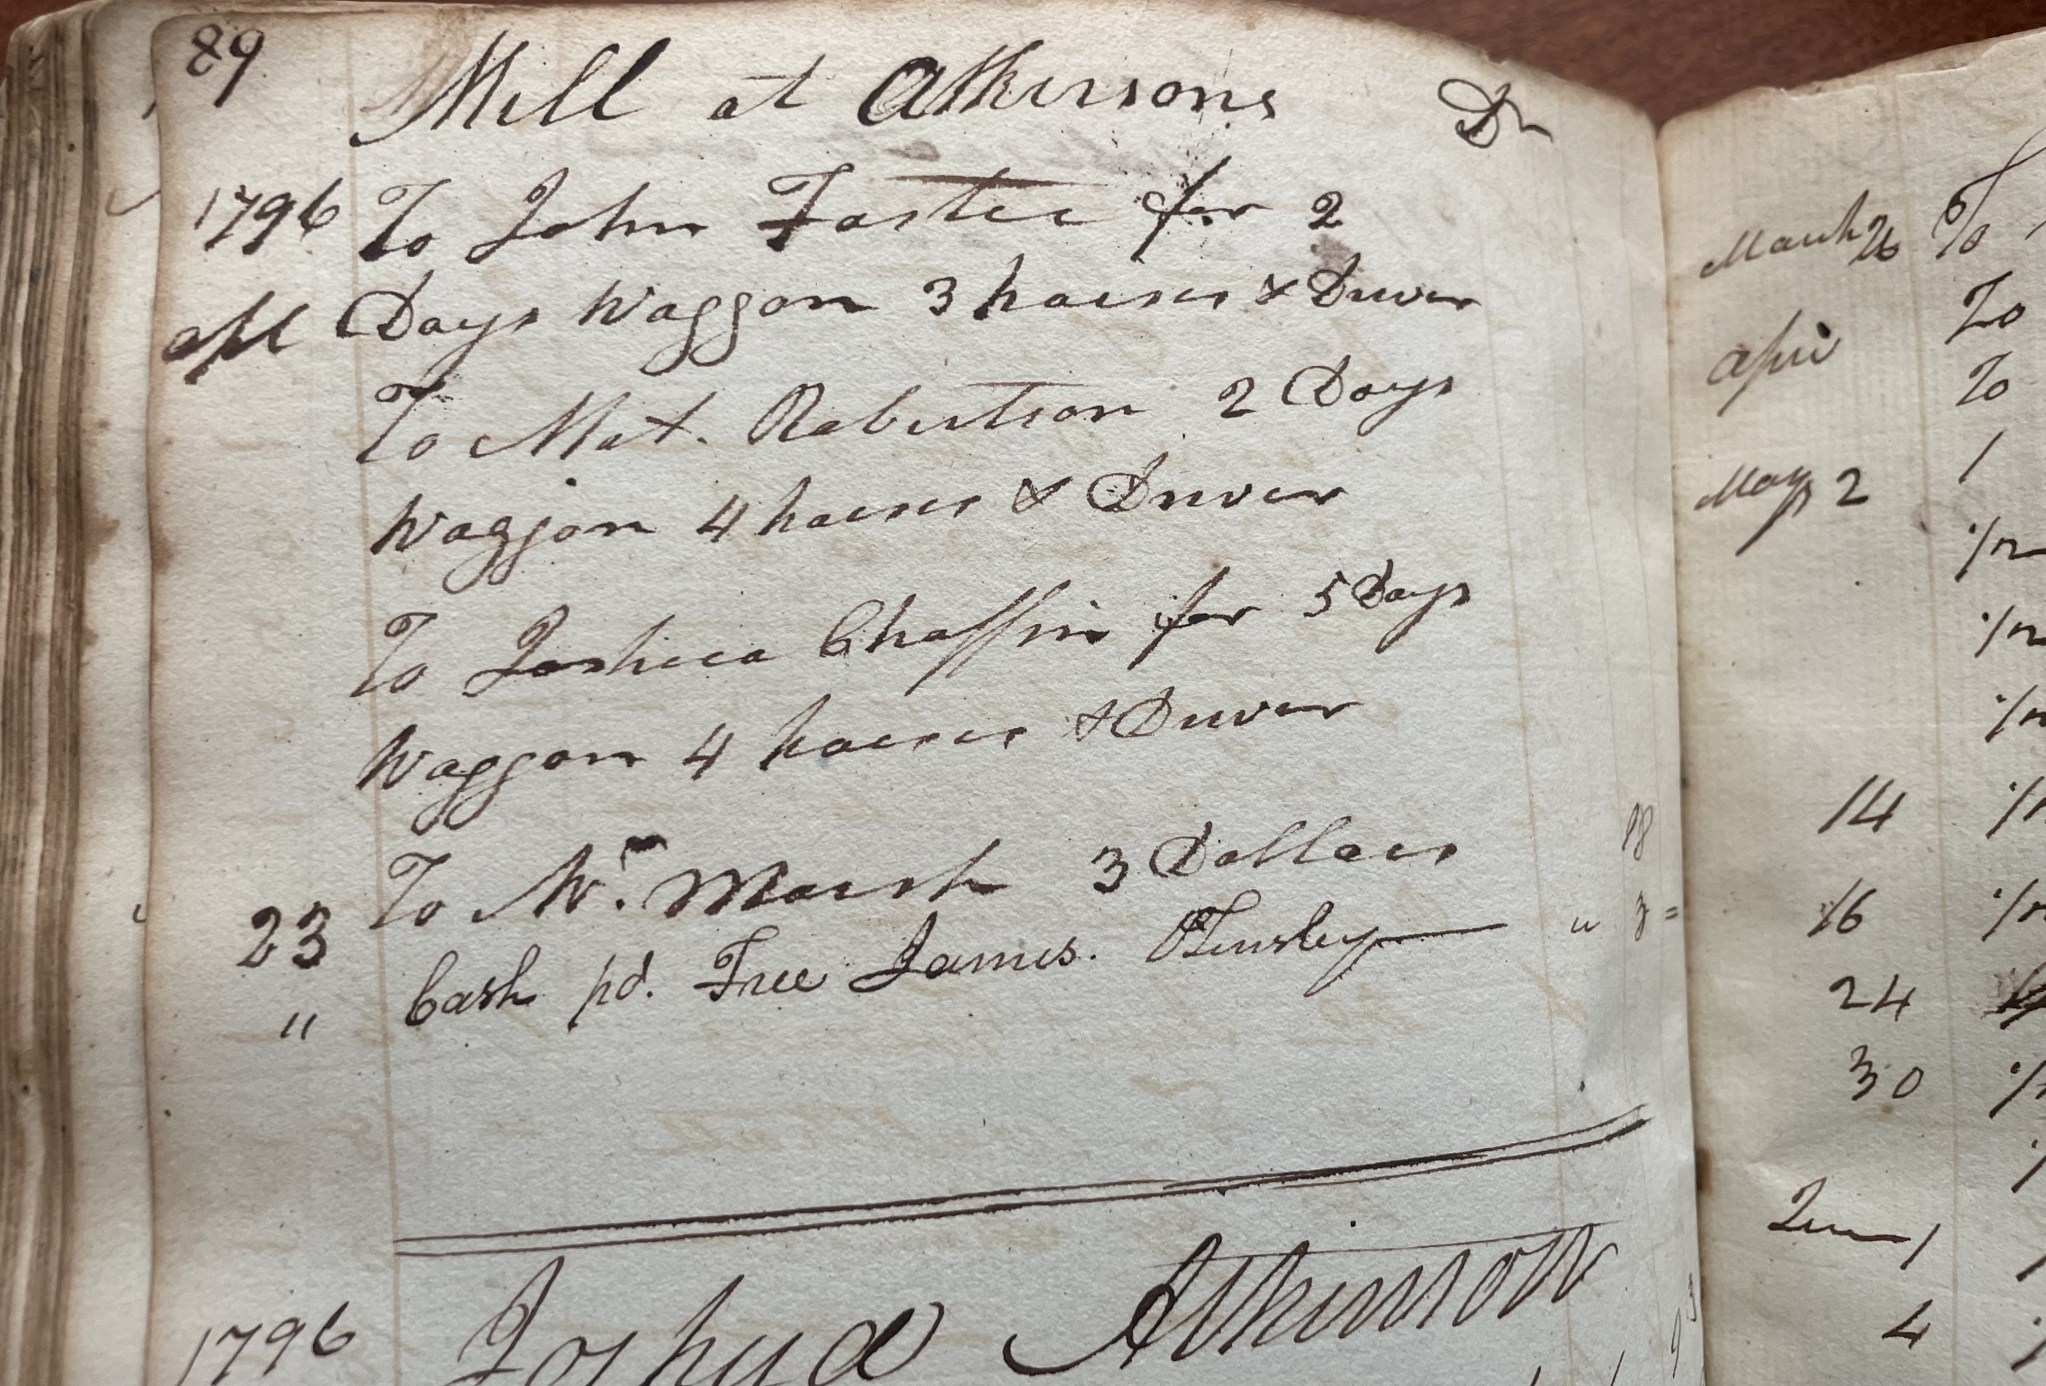 89
Mill at Atkinsons Dr
1796 To John Foster for 2
Apl Days Waggon 3 horses & Driver
To Mat. Robertson 2 Days
Waggon 4 horses & Driver
To Joshua Chaffin for 5 Days
Waggon 4 horses & Driver
To Wm. Marsh 3 Dollars 18
23
" Cash pd. Free James. Tinsley " 3 =
1796 Joshua Atkinson
March 26 To
April To
To
May 2 1
14
16
24
30
June 1
4